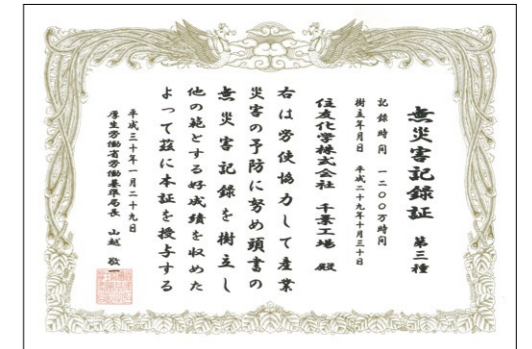 無災害記録証　第三種
記録時間　一二〇〇万時間
樹立年月日　平成二十九年十月三十日
住友化学株式会社　千葉工場　殿
右は労使協力して産業
災害の予防に努め頭書の
無災害記録を樹立し
他の範とする好成績を収めた
よって茲に本証を授与する
平成三十年一月二十九日
厚生労働省労働基準局長　山越　敬一